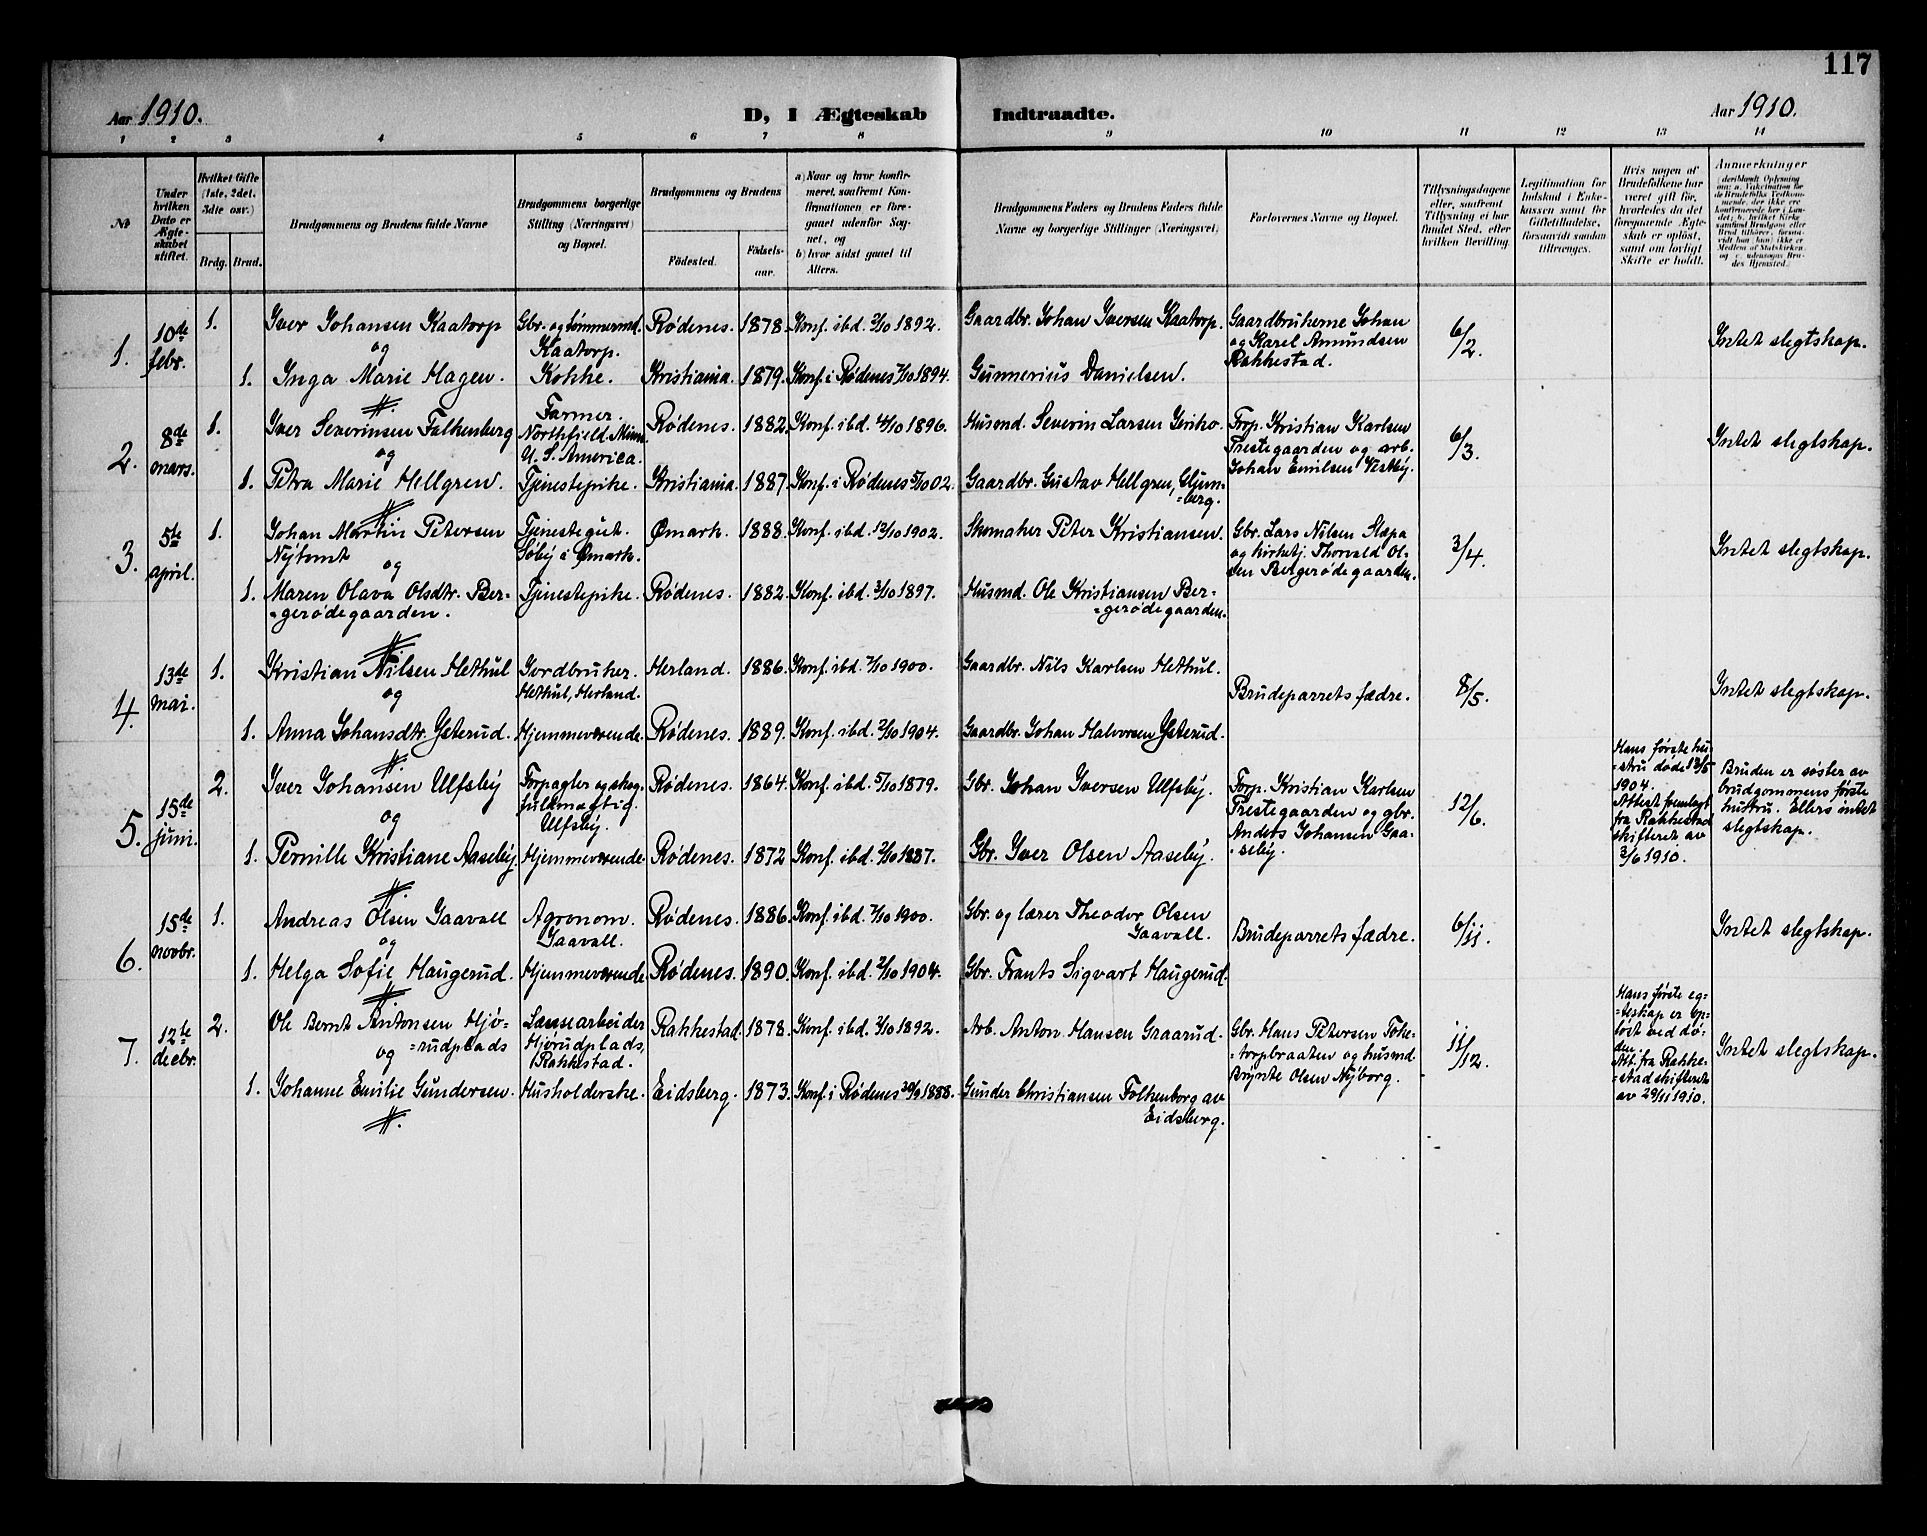 117
Aar 1910.
D, I Ægteskab Indtraadte.
Aar 1910.
1 2 3 4 5 6 7 8 9 10 11 12 13 14
№
Under hvilken Dato er Ægteskabet stiftet.
Hvilket Gifte (1ste, 2det, 3die osv.)
Brdg. Brud.
Brudgommens og Brudens fulde Navne
Brudgommens borgerlige Stilling (Næringsvei) og Bopæl.
Brudgommens og Brudens
Födested.
Födselsaar.
a) Naar og hvor konfirmeret, saafremt Konfirmationen er foregaaet udenfor Sognet, og
b) hvor sidst gaaet til Alters.
Brudgommens Faders og Brudens Faders fulde Navne og borgerlige Stillinger (Næringsvei)
Forlovernes Navne og Bopæl.
Tillysningsdagene eller, saafremt Tillysning ei har fundet Sted, efter hvilken Bevilling.
Legitimation for Indskud i Enkekassen samt for Giftetilladelse, forsaavidt saadan tiltrænges.
Hvis nogen af Brudefolkene har været gift før, hvorledes da det foregaaende Ægteskab er opløst, samt om lovligt Skifte er holdt.
Anmerkninger
(deriblandt Oplysning om: a. Vakcination for de Brudefolks Vedkommende, der ikke ere konfirmerede her i Landet; b. hvilket Kirkesamfund Brudgom eller Brud tilhører, forsaavidt han (hun) ikke er Medlem af Statskirken og c. udensogns Brudes Hjemsted.)
1. 10de febr. 1. Iver Johansen Kaatorp Gbr. og tömmermd. Kaatorp. Rödenes. 1878. Konf. ibd. 2/10 1892. Gaardbr. Johan Iversen Kaatorp. Gaardbrukerne Johan og Karel Amundsen Rakkestad. 6/2. Intet slegtskap.
og
1. Inga Marie Hagen. Kokke. Kristiania. 1879. Konf. i Rödenes 7/10 1894. Gunnerius Danielsen.
2. 8de mars. 1. Iver Severinsen Falkenberg Farmer. Northfield. Minn. U. S. America. Rödenes. 1882. Konf. ibd. 4/10 1896. Husmd. Severin Larsen Jeriko. Forp. Kristian Karlsen Prestegaarden og arb. Johan Emilsen Vestby. 6/3. Intet slegtskap.
og
1. Petra Marie Hellgren. Tjenestepike. Kristiania. 1887. Konf. i Rödenes 5/10 02. Gaardbr. Gustav Hellgren,
3. 5te april. 1. Johan Martin Petersen Nytomt Tjenestegut. Söby i Ømark. Ømark. 1888. Konf. ibd. 12/10 1902. Skomaker Peter Kristiansen. Gbr. Lars Nilsen Slæpa og kirketj. Thorvald Olsen Bergerödegaarden. 3/4. Intet slegtskap.
og
1. Maren Olava Olsdtr. Bergerödegaarden. Tjenestepike. Rödenes. 1882. Konf. ibd. 3/10 1897. Husmd. Ole Kristiansen Bergerödegaarden.
4. 13de mai. 1. Kristian Nilsen Hethul Jordbruker. Hethul, Herland. Herland. 1886. Konf. ibd. 7/10 1900. Gaardbr. Nils Karlsen Hethul. Brudeparrets fædre. 8/5. Intet slegtskap.
og
1. Anna Johansdtr. Ysterud. Hjemmeværende. Rödenes. 1889. Konf. ibd. 2/10 1904. Gaardbr. Johan Halvorsen Ysterud.
5. 15de juni. 2. Iver Johansen Ulfsby Forpagter og skogfuldmægtig. Ulfsby. Rödenes. 1864. Konf. ibd. 5/10 1879. Gbr. Johan Iversen Ulfsby. Forp. Kristian Karlsen Prestegaarden og gbr. Anders Johansen Gaaseby. 12/6. Hans første hustru døde 13/5 1904. Attest fremlagt fra Rakkestad skifteret av 3/6 1910. Bruden er søster av brudgommens første hustru. Ellers intet slegtskap.
og
1. Pernille Kristiane Aaseby. Hjemmeværende. Rödenes. 1872. Konf. ibd. 2/10 1887. Gbr. Iver Olsen Aaseby.
6. 15de novbr. 1. Andreas Olsen Gaavall Agronom. Gaavall. Rödenes. 1886. Konf. ibd. 7/10 1900. Gbr. og lærer Theodor Olsen Gaavall. Brudeparrets fædre. 6/11. Intet slegtskap.
og
1. Helga Sofie Haugerud. Hjemmeværende. Rödenes. 1890. Konf. ibd. 2/10 1904. Gbr. Frants Sigvart Haugerud.
7. 12te decbr. 2. Ole Bernt Antonsen Hjörudplads Lænsearbeider Hjörudplads, Rakkestad. Rakkestad. 1878. Konf. ibd. 2/10 1892. Arb. Anton Hansen Graarud. Gbr. Hans Petersen Toketorpbraaten og husmd. Brynte Olsen Nyborg. 11/12. Hans første egteskap er opløst ved döden. Att. fra Rakkestad skifteret av 29/11 1910. Intet slegtskap.
og
1. Johanne Emilie Gundersen. Husholderske. Eidsberg. 1873. Konf. i Rödenes 30/9 1888. Gunder Christiansen Folkenborg av Eidsberg.